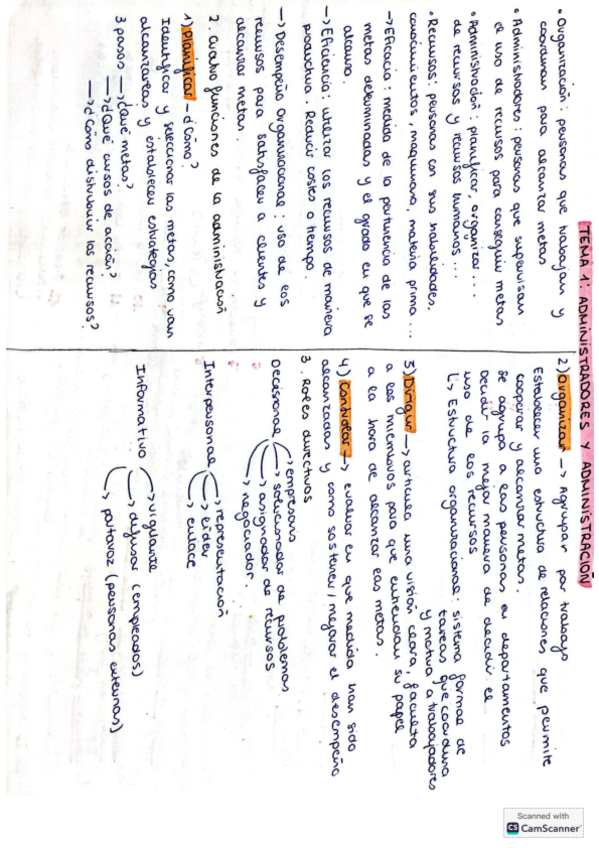 TEMA 1: ADMINISTRADORES Y ADMINISTRACIÓN
• Organización: personas que trabajan y
coordinan para alcanzar metas
• Administradores: personas que supervisan
el uso de recursos para conseguir metas
• Administración: planificar, organizar...
de recursos y recursos humanos...
• Recursos: personas con sus habilidades,
conocimientos, maquinaria, materia prima...
→ Eficacia: medida de la pertinencia de las
metas determinadas y el grado en que se
alcanza.
→ Eficiencia: utilizar los recursos de manera
productiva. Reducir costes o tiempo.
→ Desempeño organizacional: uso de los
recursos para satisfacer a clientes y
alcanzar metas.
2. Cuatro funciones de la administración
1) Planificar - ¿Cómo?
Identificar y seleccionar las metas, como van
alcanzarlas y establecer estrategias
3 pasos → ¿Qué metas?
→ ¿Qué cursos de acción?
→ ¿Cómo distribuir los recursos?
2) Organizar → Agrupar por trabajo
Establecer una estructura de relaciones que permite
cooperar y alcanzar metas.
se agrupa a las personas en departamentos
Decidir la mejor manera de decidir el
uso de los recursos
↳ Estructura organizacional: sistema formal de
tareas que coordina
y motiva a trabajadores
3) Dirigir → articula una visión clara, faculta
a los miembros para que entiendan su papel
a la hora de alcanzar las metas.
4) Controlar → evaluar en que medida han sido
alcanzadas y como sostener/mejorar el desempeño
3. Roles directivos
Decisional → empresario
→ solucionador de problemas
→ asignador de recursos
→ negociador.
Interpersonal → representación
→ líder
→ enlace
Informativo → vigilante
→ difusor (empleados)
→ portavoz (personas externas)
Scanned with
CS CamScanner